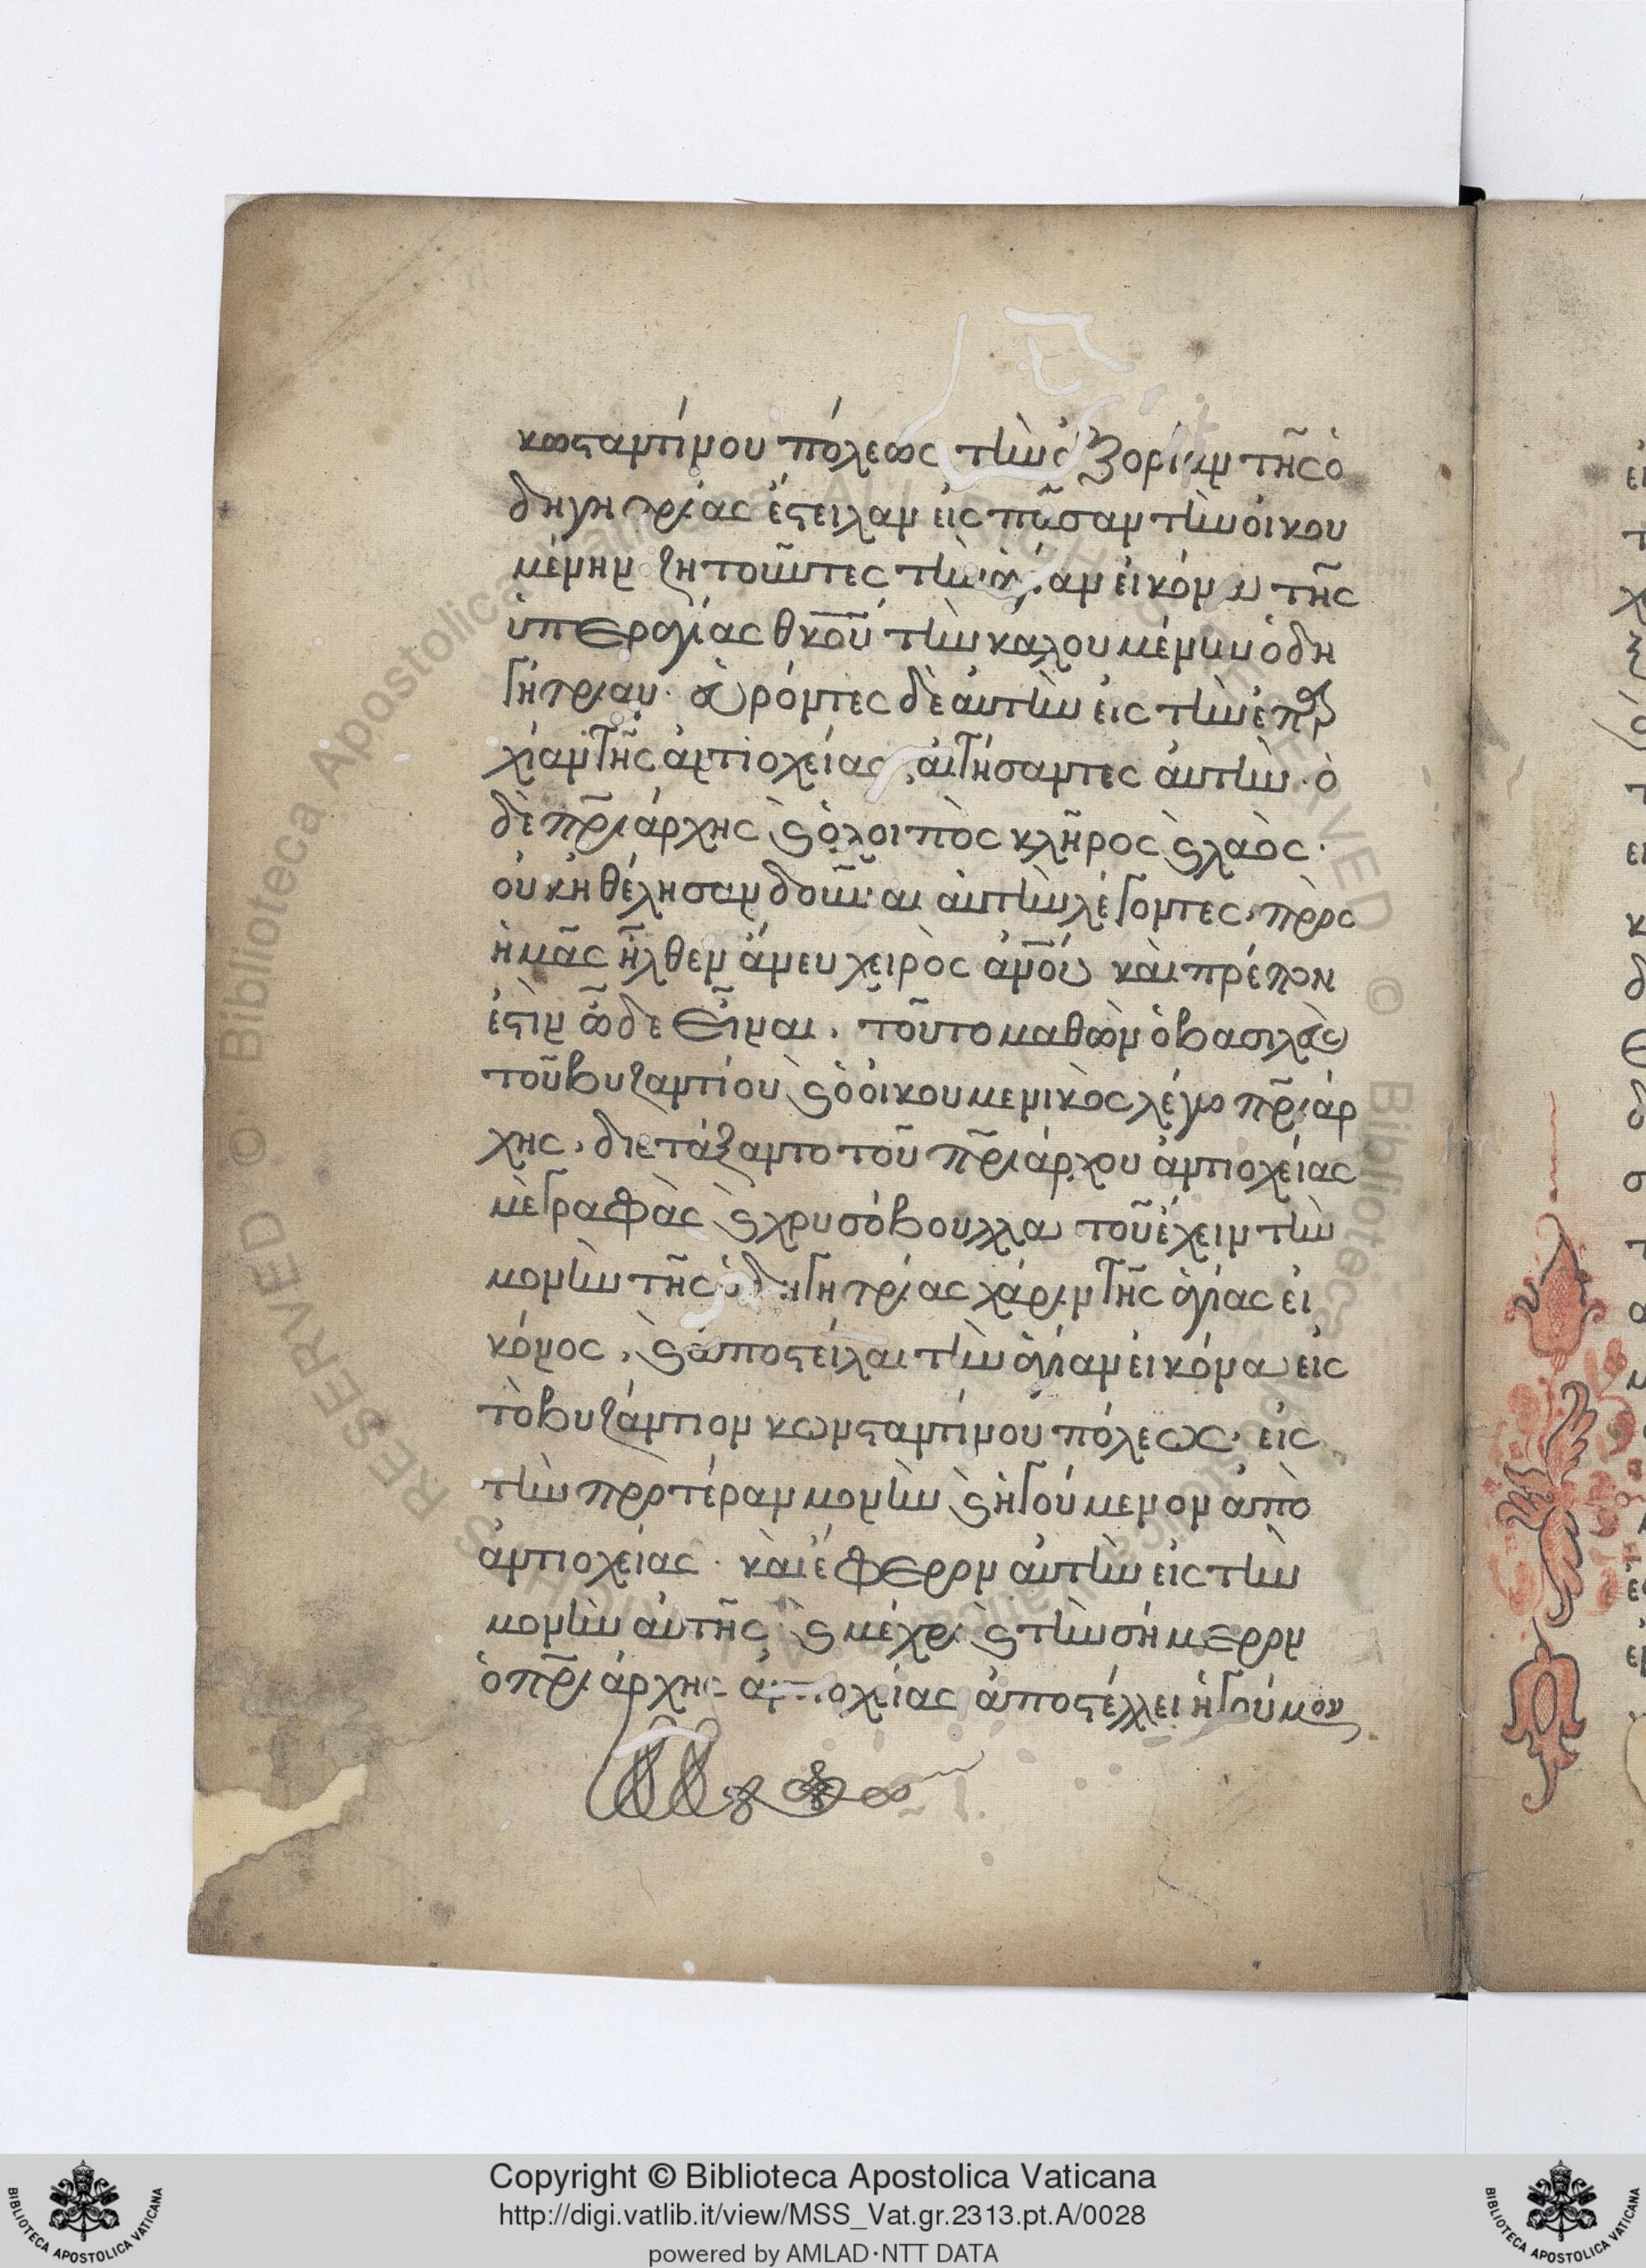 κωσταντίνου πόλεως τὴν ἐξορίαν τῆς ὁ
δηγητρίας ἔστειλαν εἰς πᾶσαν τὴν οἰκου
μένην ζητοῦντες τὴν ἁγίαν εἰκόνα τῆς
ὑπεραγίας θκοῦ τὴν καλουμένην ὁδη
γήτριαν· εὑρόντες δὲ αὐτὴν εἰς τὴν ἐπαρ
χίαν τῆς ἀντιοχείας, αἰτήσαντες αὐτήν· ὁ
δὲ πρ̅ιάρχης ϗ ὁ λοιπὸς κλῆρος ϗ λαὸς·
οὐκ ἠθέλησαν δοῦναι αὐτὴν λέγοντες, πρὸς
ἡμᾶς ἦλθεν ἄνευ χειρὸς ἀν̅ου καὶ πρέπον
ἐστὶν ὧδε εἶναι, τοῦτο μαθὼν ὁ βασιλεὺς
τοῦ βυζαντίου ϗ ὁ οἰκουμενικὸς λέγω πρ̅ιάρ
χης, διετάξαντο τοῦ πρ̅ιάρχου ἀντιοχείας
μὲ γραφὰς ϗ χρυσόβουλλα τοῦ ἔχειν τὴν
μονὴν τῆς ὁδηγητρίας χάριν τῆς ἁγίας εἰ
κόνος, ϗ ἀποστεῖλαι τὴν ἁγίαν εἰκόνα εἰς
τὸ βυζάντιον κωνσταντίνου πόλεως· εἰς
τὴν προτέραν μονὴν ϗ ἡγούμενον ἀπὸ
ἀντιοχείας· καὶ ἔφερον αὐτὴν εἰς τὴν
μονὴν αὐτῆς ϗ μέχρι ϗ τὴν σήμερον
ὁ πρ̅ιάρχης ἀντιοχείας ἀποστέλλει ἡγούμον
Copyright © Biblioteca Apostolica Vaticana
http://digi.vatlib.it/view/MSS_Vat.gr.2313.pt.A/0028
powered by AMLAD·NTT DATA
BIBLIOTECA APOSTOLICA VATICANA
BIBLIOTECA APOSTOLICA VATICANA